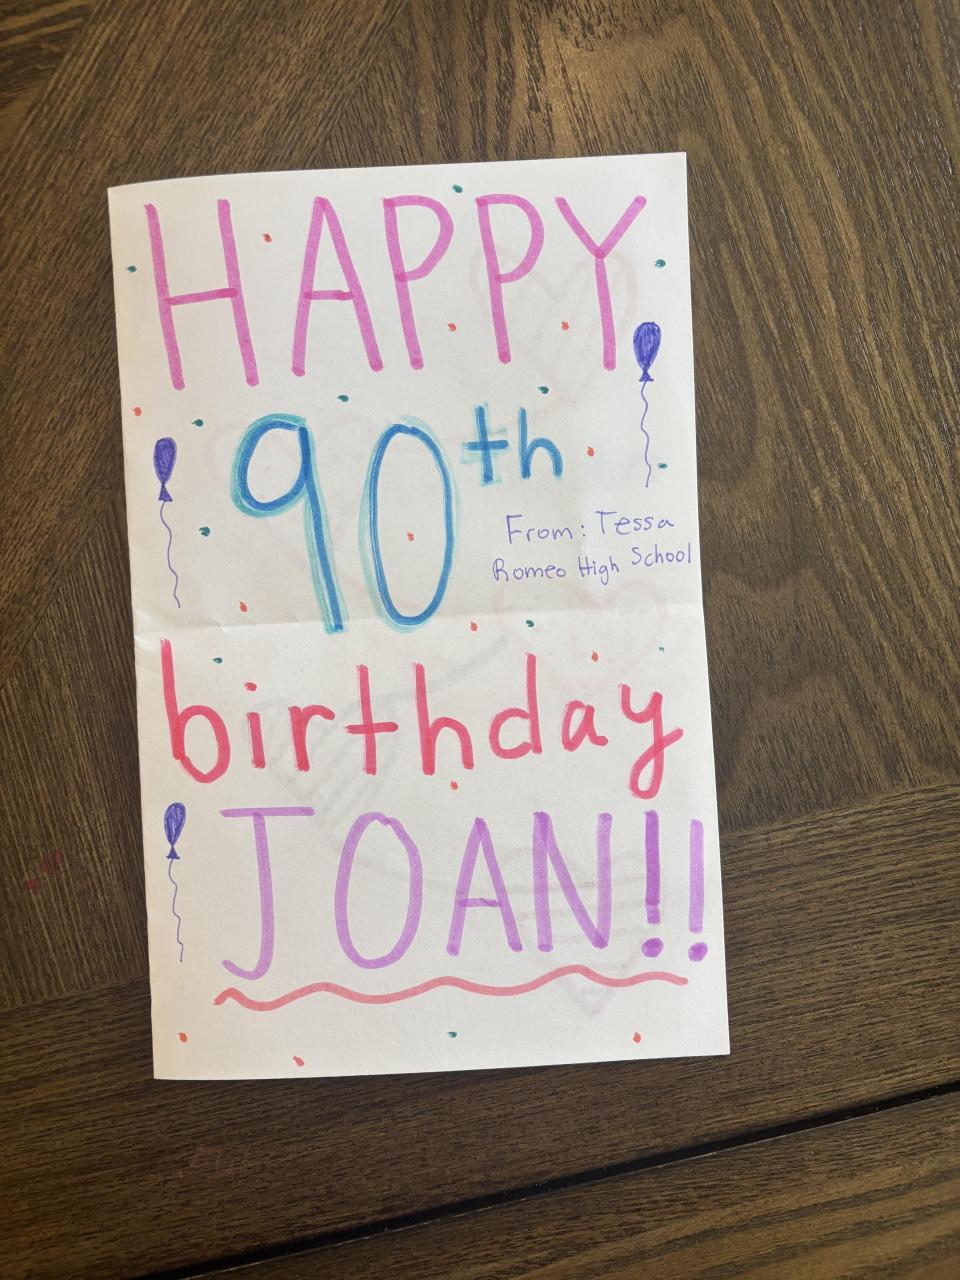 HAPPY
90th
From: Tessa
Romeo High School
birthday
JOAN!!